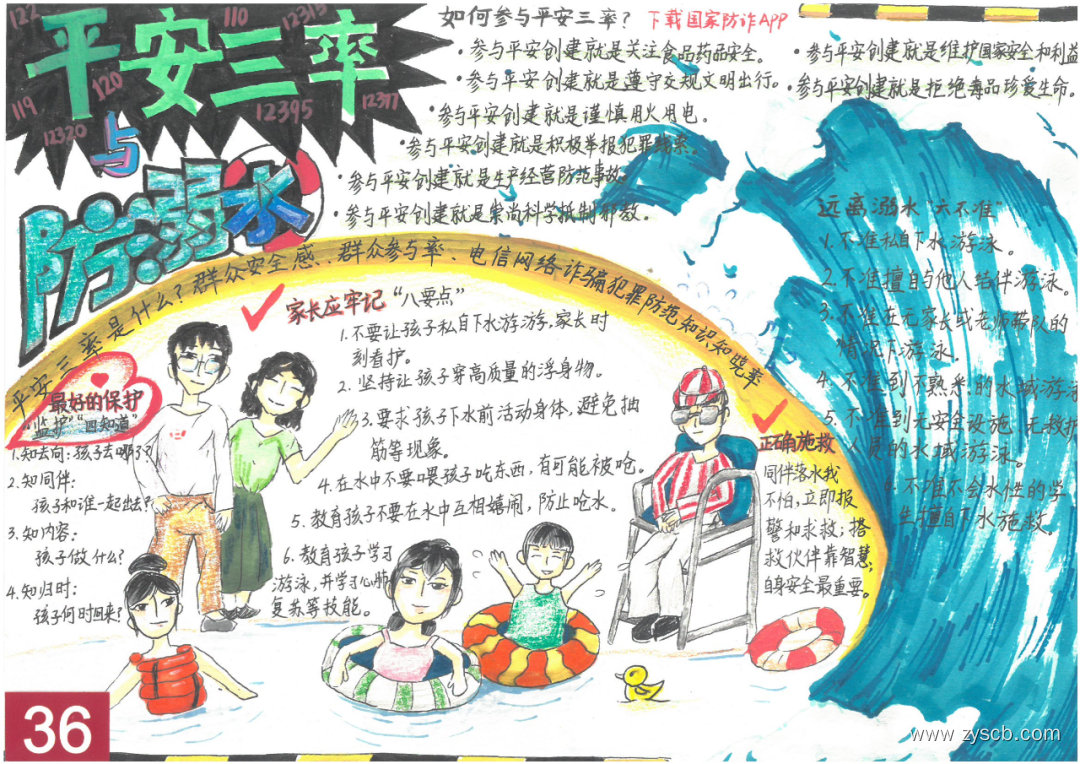 122
110
12315
平安三率
119
120
12320
12395
12377
与
防溺水
如何参与平安三率? 下载国家防诈APP
·参与平安创建就是关注食品药品安全。
·参与平安创建就是遵守交规文明出行。
·参与平安创建就是谨慎用火用电。
·参与平安创建就是积极举报犯罪线索。
·参与平安创建就是生产经营防范事故。
·参与平安创建就是崇尚科学抵制邪教。
·参与平安创建就是维护国家安全和利益
参与平安创建就是拒绝毒品珍爱生命。
平安三率是什么?群众安全感、群众参与率、电信网络诈骗犯罪防范知识知晓率
最好的保护
"监护"四知道
1.知去向:孩子去哪了?
2.知同伴:
孩子和谁一起出去?
3.知内容:
孩子做什么?
4.知归时:
孩子何时回来?
家长应牢记"八要点"
1.不要让孩子私自下水游游,家长时
刻看护。
2.坚持让孩子穿高质量的浮身物。
3.要求孩子下水前活动身体,避免抽
筋等现象。
4.在水中不要喂孩子吃东西,有可能被呛。
5.教育孩子不要在水中互相嬉闹,防止呛水。
6.教育孩子学习
游泳,并学习心肺
复苏等技能。
正确施救
同伴落水我
不怕,立即报
警和求救;搭
救伙伴靠智慧;
自身安全最重要。
远离溺水"六不准"
1.不准私自下水游泳。
2.不准擅自与他人结伴游泳。
3.不准在无家长或老师带队的
情况下游泳.
4.不准到不熟悉的水域游泳
5.不准到无安全设施、无救护
人员的水域游泳。
6.不准不会水性的学
生擅自下水施救
36
www.zyscb.com